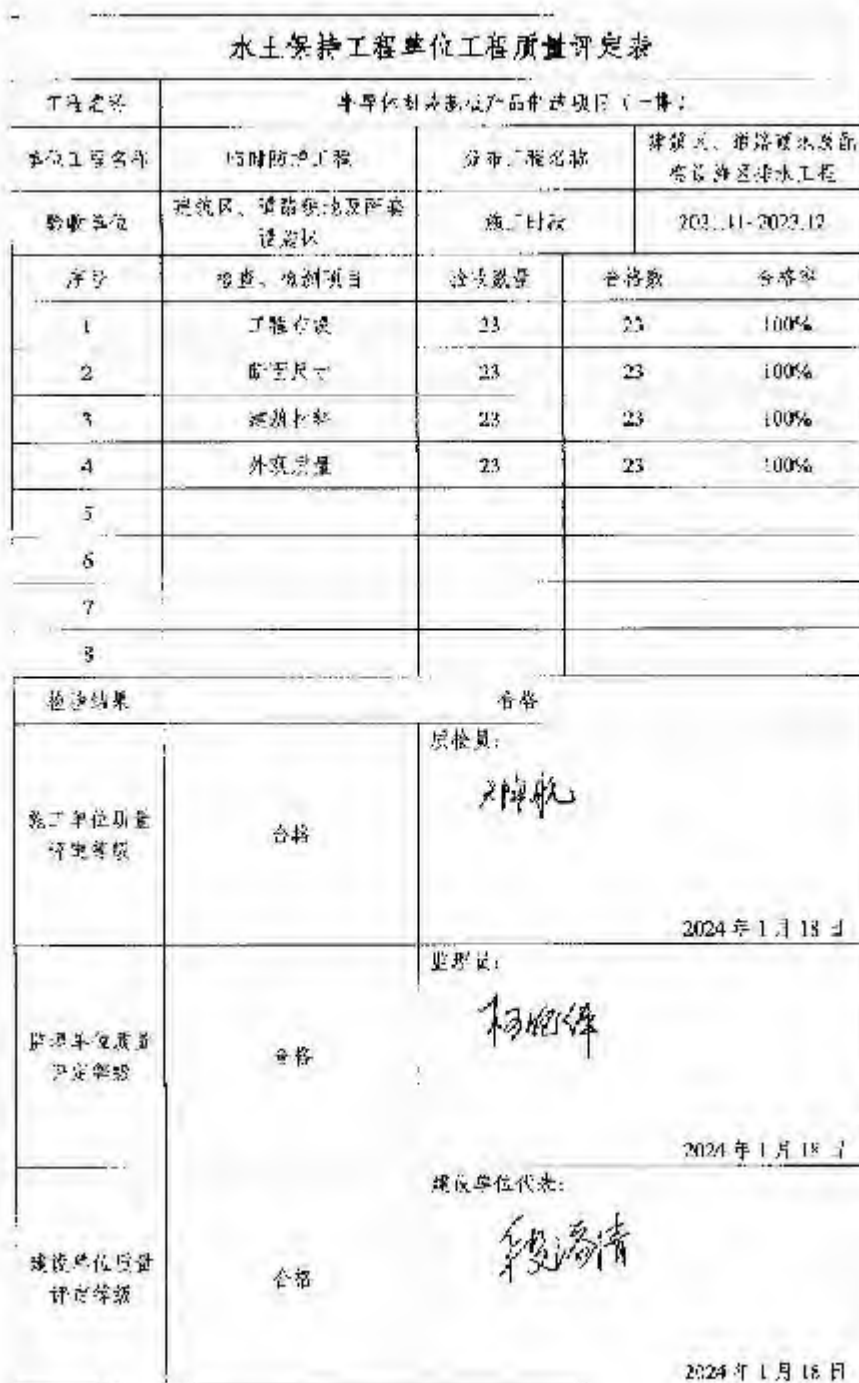 水土保持工程单位工程质量评定表
工程名称
单位工程名称 临时防护工程 分部工程名称 建筑区、道路硬地及配
套设施区排水工程
验收单位 建筑区、道路硬地及配套
设施区 施工时段 2021.11-2023.12
序号 检查、检测项目 检验数量 合格数 合格率
1 工程布设 23 23 100%
2 断面尺寸 23 23 100%
3 建筑材料 23 23 100%
4 外观质量 23 23 100%
5
6
7
8
检验结果 合格
施工单位质量
评定等级 合格 质检员:
2024年1月18日
监理单位质量
评定等级 合格 监理员:
2024年1月18日
建设单位质量
评定等级 合格 建设单位代表:
2024年1月18日